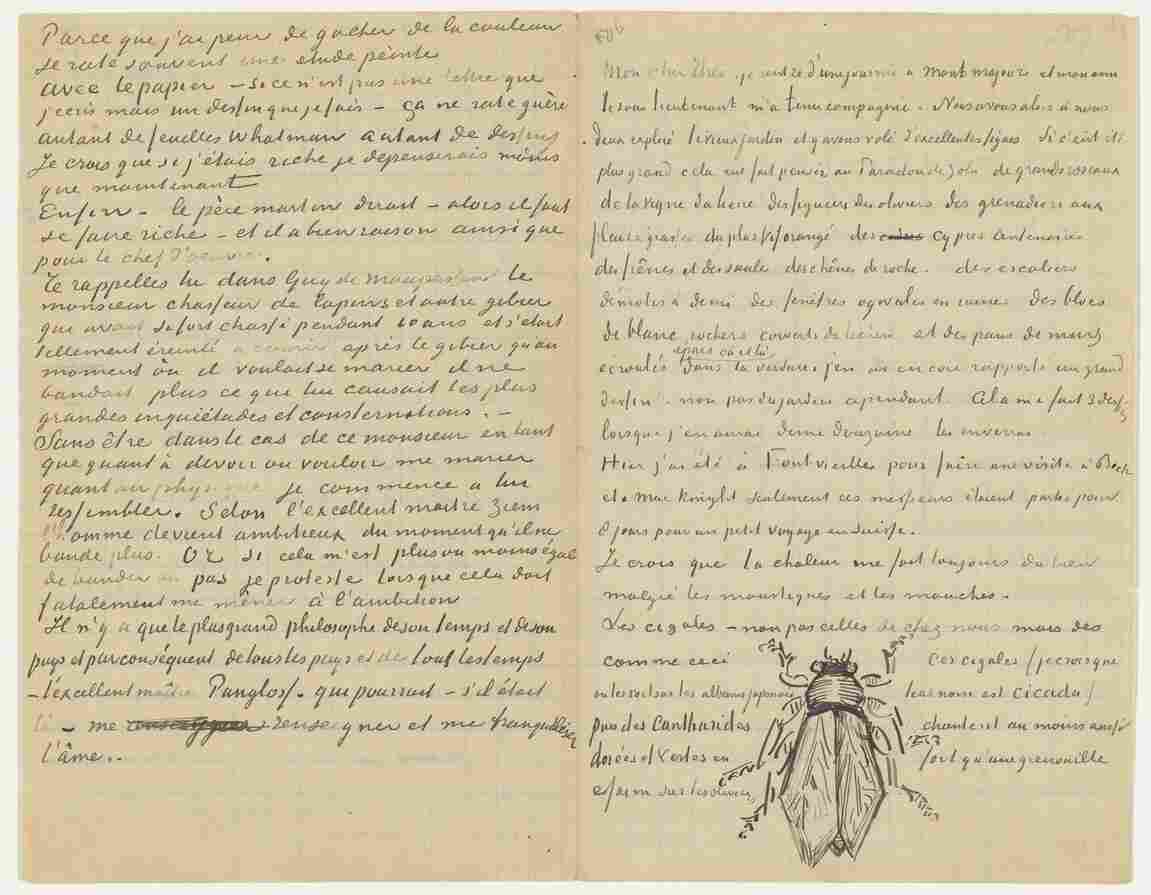 Parce que j'ai peur de gacher de la couleur
je rate souvent une etude peinte
avec le papier – si ce n'est pas une lettre que
j'ecris mais un dessin que je fais – ça ne rate guère
autant de feuilles Whatman autant de dessins
Je crois que si j'étais riche je depenserais moins
que maintenant
Enfin – le père martin dirait – alors il faut
se faire riche – et il a bien raison ainsi que
pour le chef d'oeuvre.
Te rappelles tu dans Guy de Maupassant le
monsieur chasseur de lapins et autre gibier
qui avait si fort chassé pendant 10 ans et s'était
tellement éreinté à courir après le gibier qu'au
moment où il voulait se marier il ne
bandait plus ce que lui causait les plus
grandes inquiétudes et consternations. –
Sans être dans le cas de ce monsieur en tant
que quant à devoir ou vouloir me marier
quant au physique je commence à lui
ressembler. Selon l'excellent maitre Ziem
l'homme devient ambitieux du moment qu'il ne
bande plus. Or si cela m'est plus ou moins égal
de bander ou pas je proteste lorsque cela doit
fatalement me mêner à l'ambition
Il n'y a que le plus grand philosophe de son temps et de son
pays et par conséquent de tous les pays et de tout les temps
– l'excellent maître Pangloss – qui pourrait – s'il était
là – me renseigner et me tranquilliser
l'âme. –
506
Mon cher Theo, je rentre d'une journée à Montmajour et mon ami
le sous lieutenant m'a tenu compagnie. Nous avons alors à nous
deux exploré le vieux jardin et y avons volé d'excellentes figues. Si c'eût été
plus grand cela eut fait penser au Paradou de Zola de grands roseaux
de la vigne du lierre des figuiers des oliviers des grenadiers aux
fleurs grasses du plus vif orangé des cypres centenaires
des frênes et des saules des chênes de roche. des escaliers
démolis à demi des fenêtres ogivales en ruines des blocs
de blanc rochers couverts de lichen et des pans de murs
écroulés épars ça et là dans la verdure, j'en ai encore rapporté un grand
dessin. non pas du jardin cependant. Cela me fait 3 dess–
ins
lorsque j'en aurai demi douzaine les enverrai
Hier j'ai été à Fontvieilles pour faire une visite à Bock
et à Mac Knight seulement ces messieurs étaient partis pour
8 jours pour un petit voyage en Suisse.
Je crois que la chaleur me fait toujours du bien
malgré les moustiques et les mouches.
Les cigales – non pas celles de chez nous mais des
comme ceci
on les voit sur les albums japonais
puis des Cantharides
dorées et vertes en
essaim sur les oliviers
Ces cigales (je crois que
leur nom est cicada)
chantent au moins aussi
fort qu'une grenouille